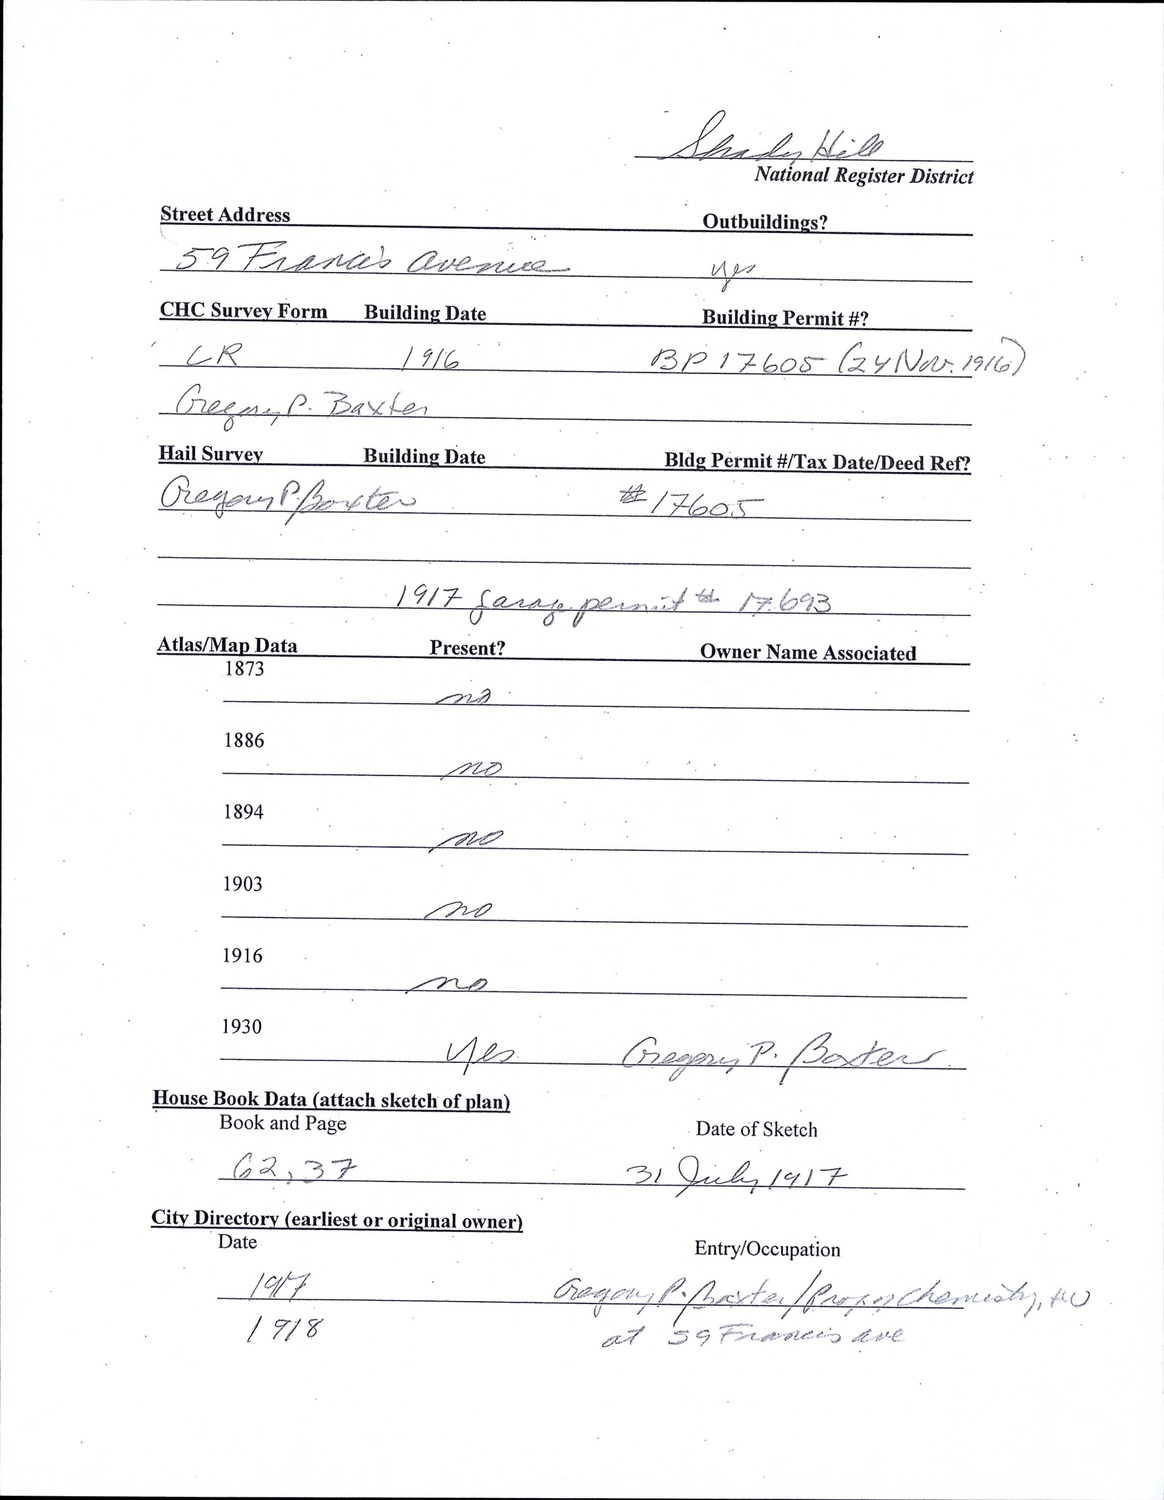 Shady Hill
National Register District
Street Address Outbuildings?
59 Francis Avenue yes
CHC Survey Form Building Date Building Permit #?
LR 1916 BP 17605 (24 Nov. 1916)
Gregory P. Baxter
Hail Survey Building Date Bldg Permit #/Tax Date/Deed Ref?
Gregory P. Baxter #17605
1917 garage permit # 17693
Atlas/Map Data Present? Owner Name Associated
1873
no
1886
no
1894
no
1903
no
1916
no
1930
yes Gregory P. Baxter
House Book Data (attach sketch of plan)
Book and Page Date of Sketch
62, 37 31 July 1917
City Directory (earliest or original owner)
Date Entry/Occupation
1917 Gregory P. Baxter/Prof of Chemistry, HU
1918 at 59 Francis ave